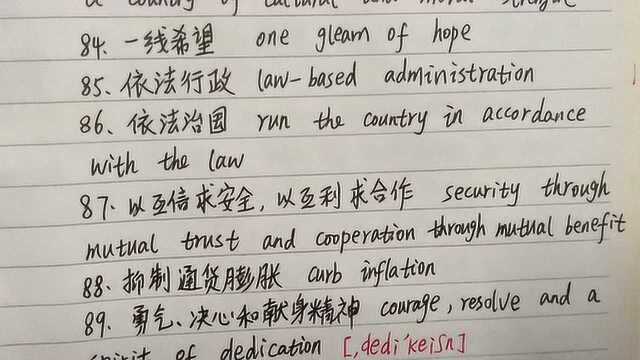 a country of cultural and moral strength
84. 一线希望 one gleam of hope
85、依法行政 law-based administration
86、依法治国 run the country in accordance
with the law
87. 以互信求安全，以互利求合作 security through
mutual trust and cooperation through mutual benefit
88. 抑制通货膨胀 curb inflation
89. 勇气、决心和献身精神 courage, resolve and a
spirit of dedication [ˌdedi'keiʃn]